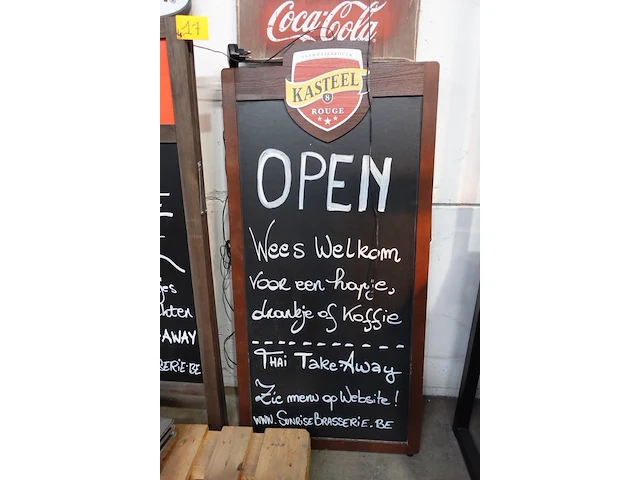 17
Coca-Cola
KASTEEL
8
ROUGE
OPEN
Wees Welkom
voor een hapje,
drankje of Koffie
THAI TAKE-AWAY
Zie menu op Website!
WWW.SUNRISEBRASSERIE.BE
AWAY